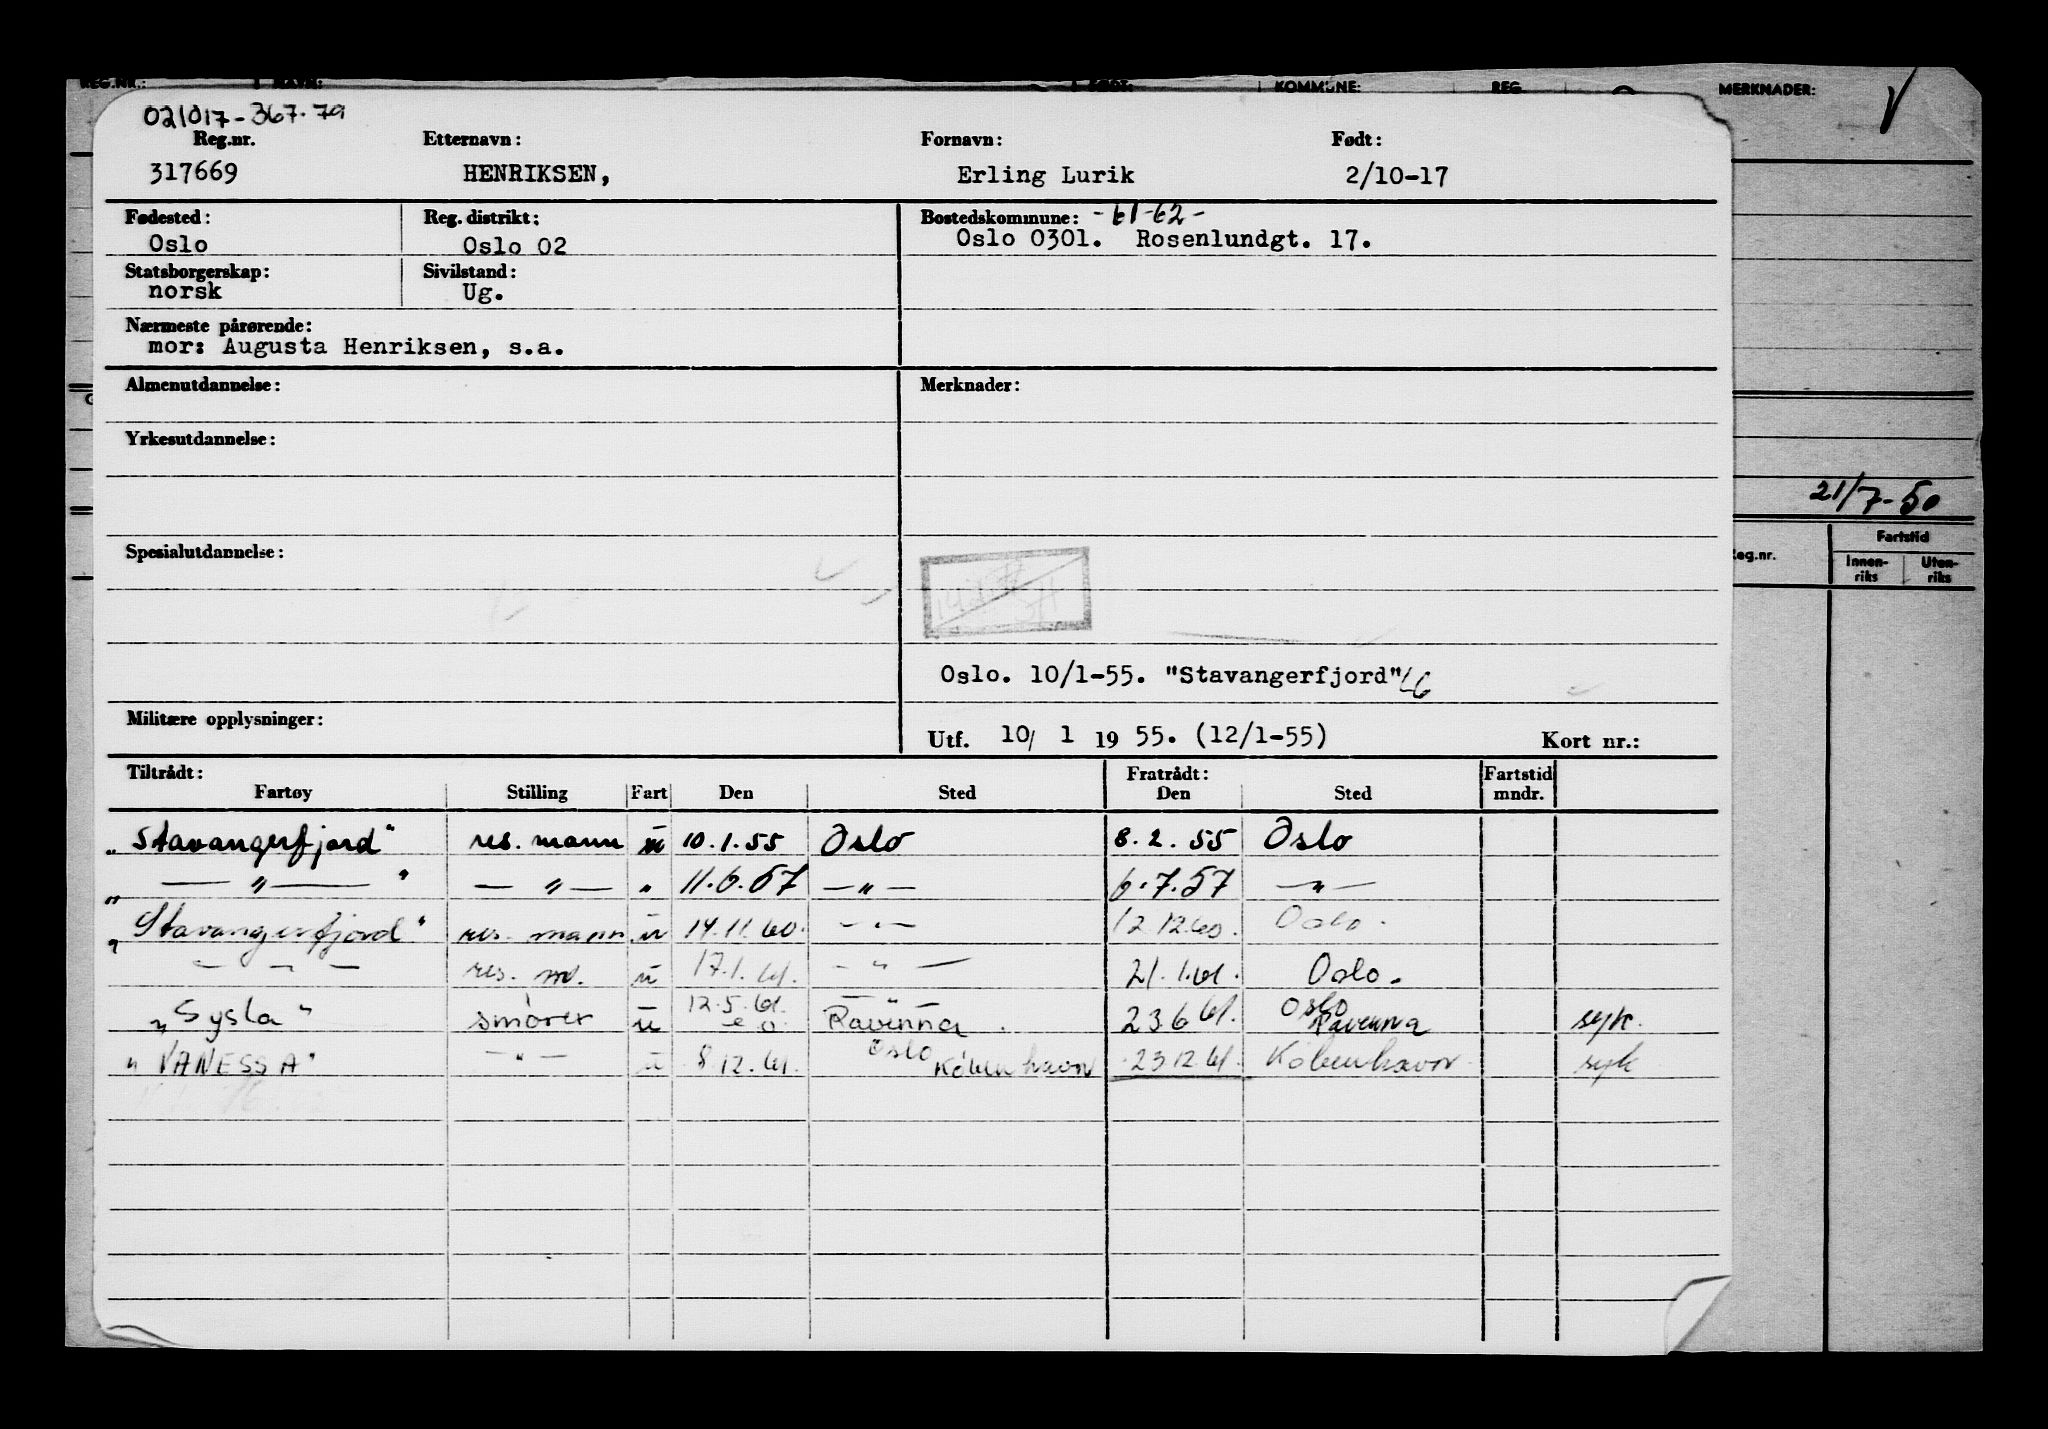 REG.NR.: NAVN: FØDT: KOMMUNE: REG. MERKNADER:
021017-367.79
Reg.nr. Etternavn: Fornavn: Født:
317669 HENRIKSEN, Erling Lurik 2/10-17
Fødested: Reg. distrikt: Bostedskommune: -61-62-
Oslo Oslo 02 Oslo 0301. Rosenlundgt. 17.
Statsborgerskap: Sivilstand:
norsk Ug.
Nærmeste pårørende:
mor: Augusta Henriksen, s.a.
Almenutdannelse: Merknader:
Yrkesutdannelse:
21/7-50
Spesialutdannelse:
eg.nr. Fartstid
Innen-riks Uten-riks
Oslo. 10/1-55. "Stavangerfjord"
Militære opplysninger:
Utf. 10/ 1 19 55. (12/1-55) Kort nr.:
Tiltrådt: Fratrådt: Fartstid
Fartøy Stilling Fart Den Sted Den Sted mndr.
"Stavangerfjord" res. mann u 10.1.55 Oslo 8.2.55 Oslo
" — " — " — " — " 11.6.57 — " — 6.7.57 — " —
"Stavangerfjord" res. mann u 14.11.60. — " — 12.12.60. Oslo.
" — — — res. m. u 17.1.61. — " — 21.1.61. Oslo.
"Sysla" smører u 12.5.61. — " — Ravenna. 23.6.61. Oslo Ravenna syk.
"VANESSA" — " — u 8.12.61. Oslo København 23.12.61. København syk